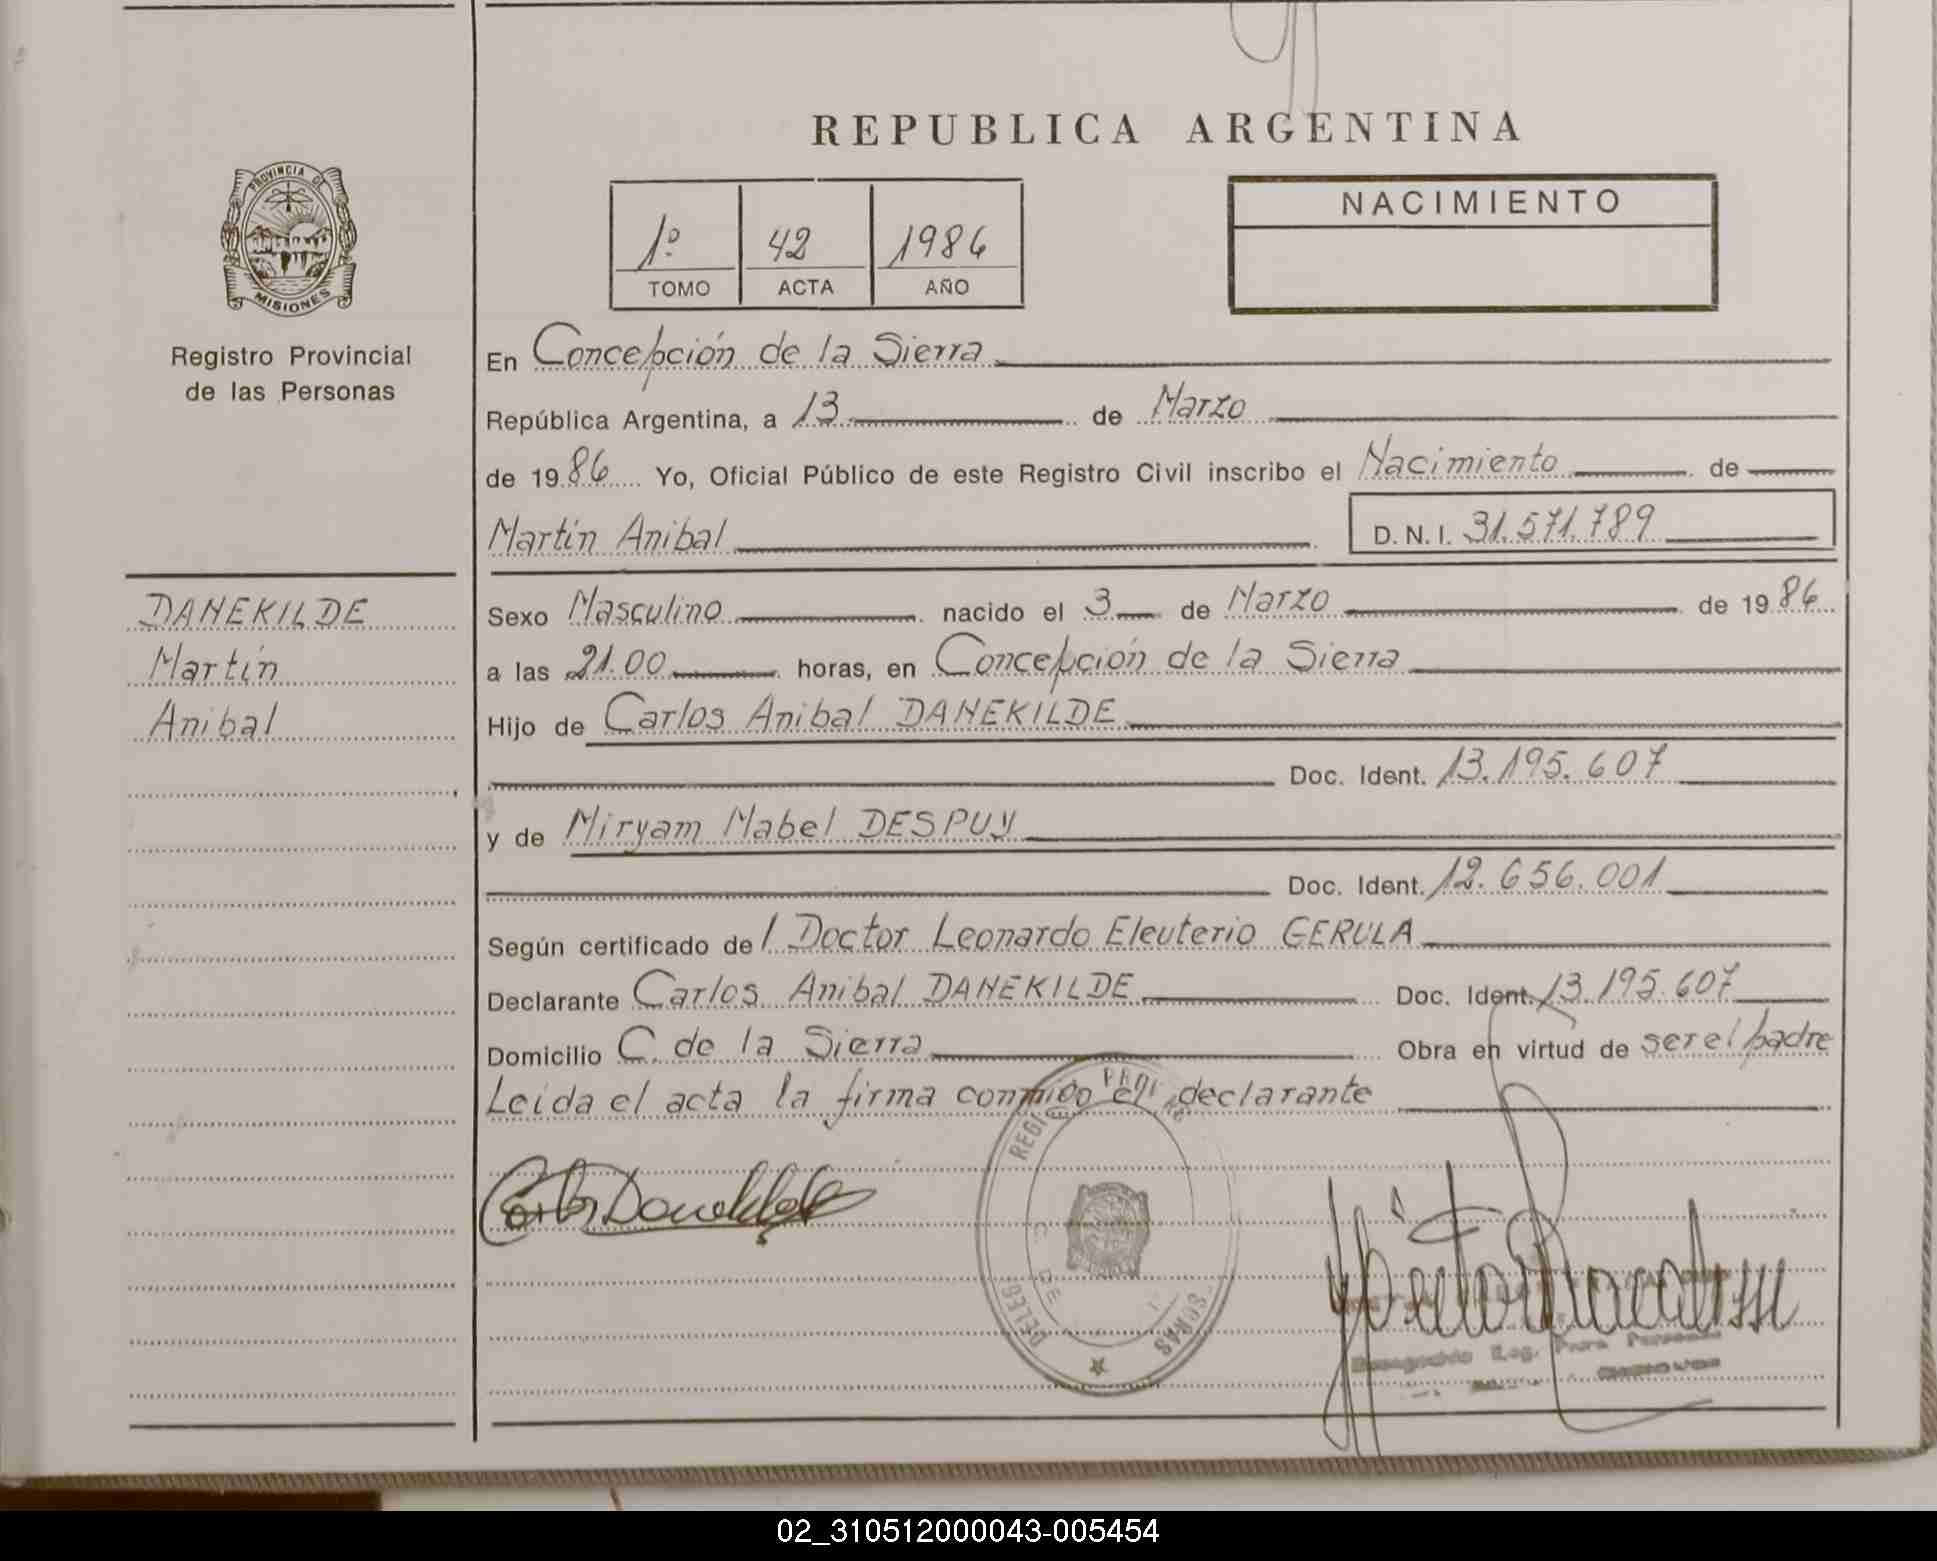 REPUBLICA ARGENTINA
PROVINCIA DE
MISIONES
Registro Provincial
de las Personas
1º 42 1986
TOMO ACTA AÑO
NACIMIENTO
En Concepción de la Sierra
República Argentina, a 13 de Marzo
de 1986 Yo, Oficial Público de este Registro Civil inscribo el Nacimiento de
Martín Anibal D.N.I. 31.571.789
DANEKILDE
Martín
Anibal
Sexo Masculino nacido el 3 de Marzo de 1986
a las 21.00 horas, en Concepción de la Sierra
Hijo de Carlos Anibal DANEKILDE
Doc. Ident. 13.195.607
y de Miryam Mabel DESPUY
Doc. Ident. 12.656.001
Según certificado del Doctor Leonardo Eleuterio GERULA
Declarante Carlos Anibal DANEKILDE Doc. Ident. 13.195.607
Domicilio C. de la Sierra Obra en virtud de ser el padre
Leída el acta la firma conmigo el declarante
02_310512000043-005454